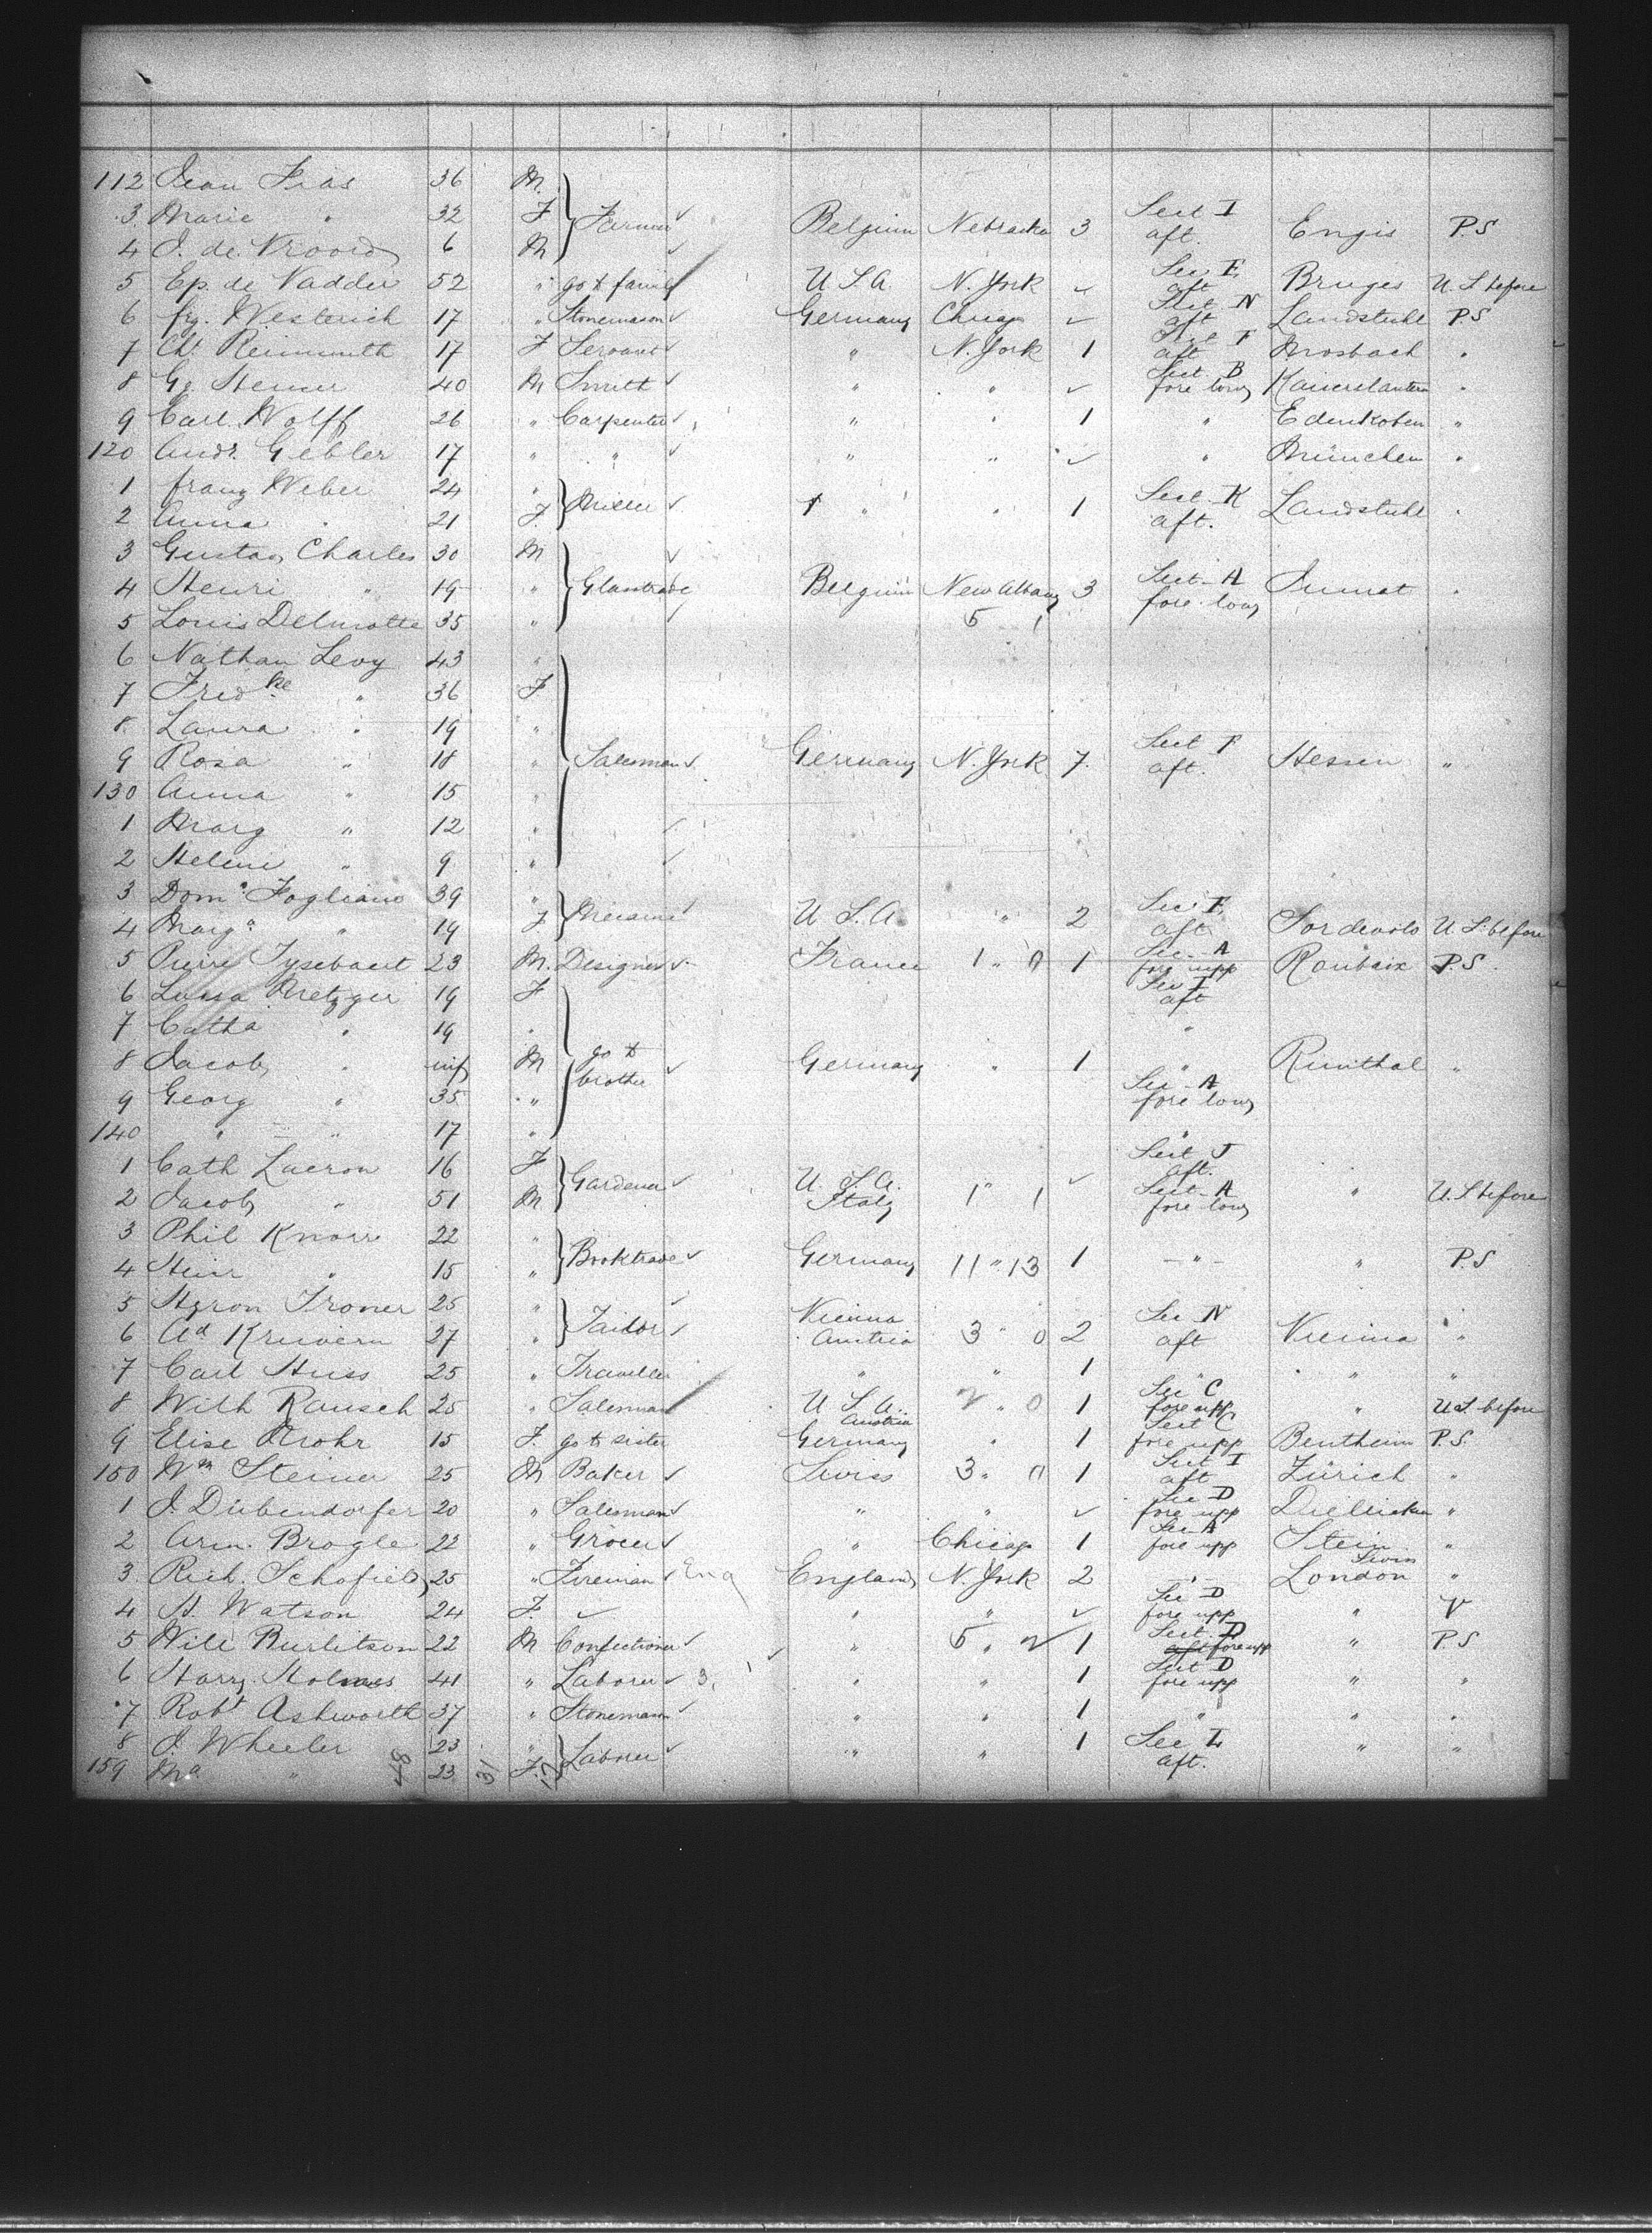 112 Jean Fias 36 M.
3 Marie " 32 F Farmer Belgium Nebraska 3 Sect I aft. Engis P.S
4 J. de Vroord 6 M
5 Ep. de Vadder 52 " go to family U.S.A. N. York Sec E aft Bruges U.S before
6 frz. Westerich 17 " Stonemason Germany Chicag Sect N aft Landstuhl P.S
7 Ch. Reinmuth 17 F Servant " N. York 1 Sect F aft Mosbach "
8 Gg. Steiner 40 M Smith " " Sect B fore low Kaiserslautern "
9 Carl Wolff 26 " Carpenter " " 1 " Edenkoben "
120 Andr. Gebler 17 " " " " " München "
1 franz Weber 24 "
2 Anna " 21 F. " " 1 Sect K aft. Landstuhl "
3 Gustav Charles 30 M
4 Henri " 19 " Glasstrade Belgium New Albany 3 Sect A fore low Jumet "
5 Louis Delmotte 35 " 5 1
6 Nathan Levy 43 "
7 Fredke " 36 F
8 Laura " 19 "
9 Rosa " 18 " Salesman Germany N. York 7 Sect F aft. Hessen "
130 Anna " 15 "
1 Marg " 12 "
2 Helene " 9 "
3 Dom. Fogliano 39 "
4 Marg. " 19 F. U.S.A. " 2 Sec E aft Sordevolo U.S. before
5 Pierre Tysebaert 23 M. Designer France 1 " 0 1 Sec A fore upp Roubaix P.S.
6 Luisa Metzger 19 F Sec I aft
7 Catha " 19 " "
8 Jacob " inf M go to brother Germany " 1 " Rinnthal "
9 Georg " 35 " Sec A fore low
140 " " 17 " "
1 Cath Lacron 16 F Sect J aft.
2 Jacob " 51 M Gardener U.S.A. Italy 1 " 1 Sect A fore low " U.S before
3 Phil Knorr 22 "
4 Heinr " 15 " Booktrade Germany 11 " 13 1 - " - " P.S
5 25 "
6 Ad 27 " Tailor Vienna Austria 3 " 0 2 Sec N aft Vienna "
7 Carl Huss 25 " Traveller " " 1 " " "
8 Wilh Rausch 25 " Salesman U.S.A. Austria 2 " 0 1 Sec C fore upp " U.S. before
9 Elise Krohr 15 F. go to sister Germany " 1 Sect C fore upp Bentheim P.S.
150 Wm Steiner 25 M Baker Swiss 3 " 0 1 Sect I aft Zürich "
1 J. Dübendorfer 20 " Salesman " " Sec D fore upp "
2 Arn. Brogle 22 " Grocer " Chicago 1 Sec A fore upp Stein Swiss "
3 Rich. Schofield 25 " Fireman Eng England N. York 2 - " - London "
4 H. Watson 24 F. " " Sec D fore upp " V
5 Will Burlitson 22 M Confectioner " 5 " 2 1 Sect D aft fore upp " P.S
6 Harry Holmes 41 " Laborer 3, 1 " " 1 Sect D fore upp " "
7 Robt Ashworth 37 " Stonemason " " 1 " " "
8 J. Wheeler 23 " Laborer " " 1 Sec L aft. " "
159 Ma " 48 23 31 F. 17